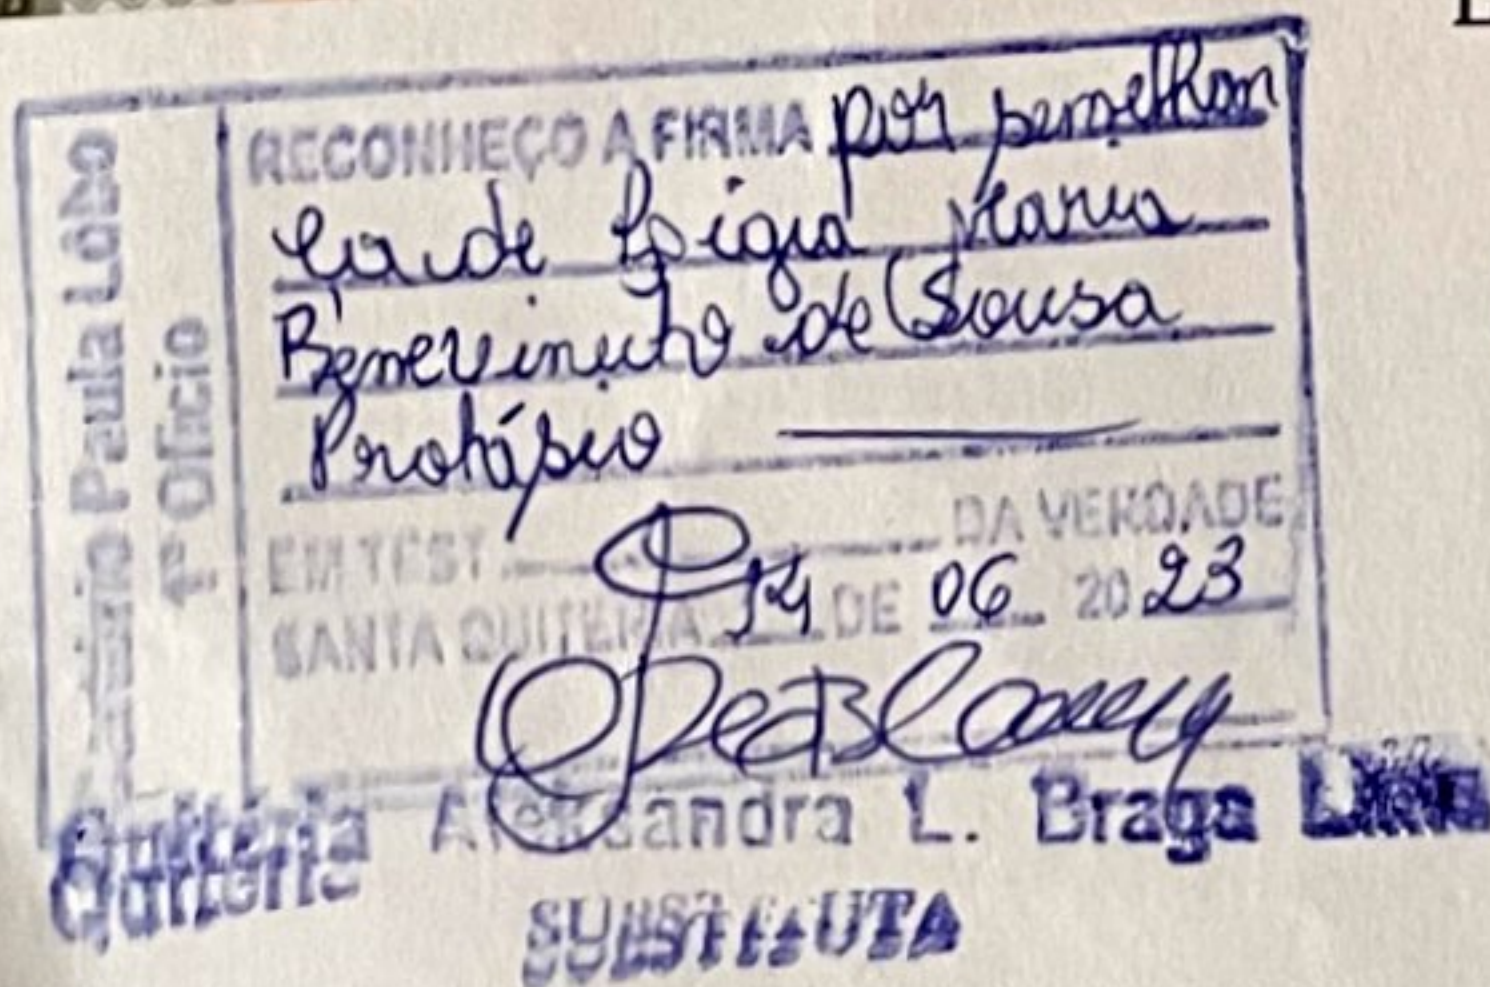 Paula Lobo
1º Ofício
RECONHEÇO A FIRMA por semelhan
ça de Lígia Maria
Benevinuto de Sousa
Protásio
EM TEST. DA VERDADE
SANTA QUITÉRIA 14 DE 06 20 23
Quitéria Aleksandra L. Braga Lima
SUBSTITUTA